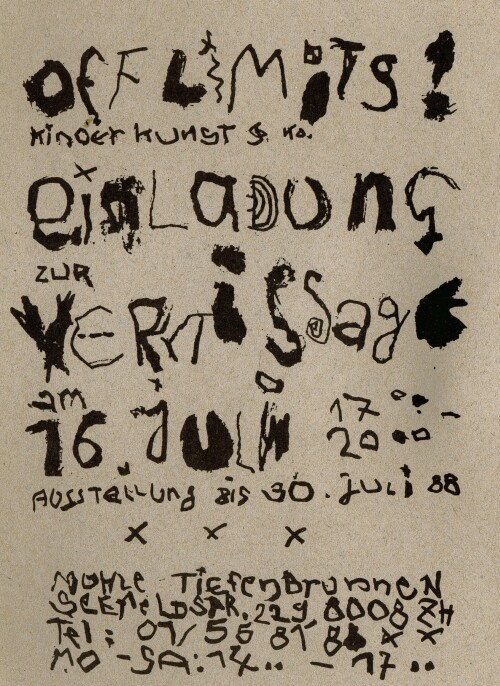 OFF LiMiTS!
Kinder kunst & Ko.
einLADUNG
ZUR
VERNISSAGE
am
16. juli 17⁰⁰ –
20⁰⁰
AUSSTELLUNG BiS 30. juli 88
x x x
MÜHLE TiefenBrunnen
SEEFELDSTR. 229 8008 ZH
Tel: 01/ 55 81 8
MO - SA: 14.. – 17..